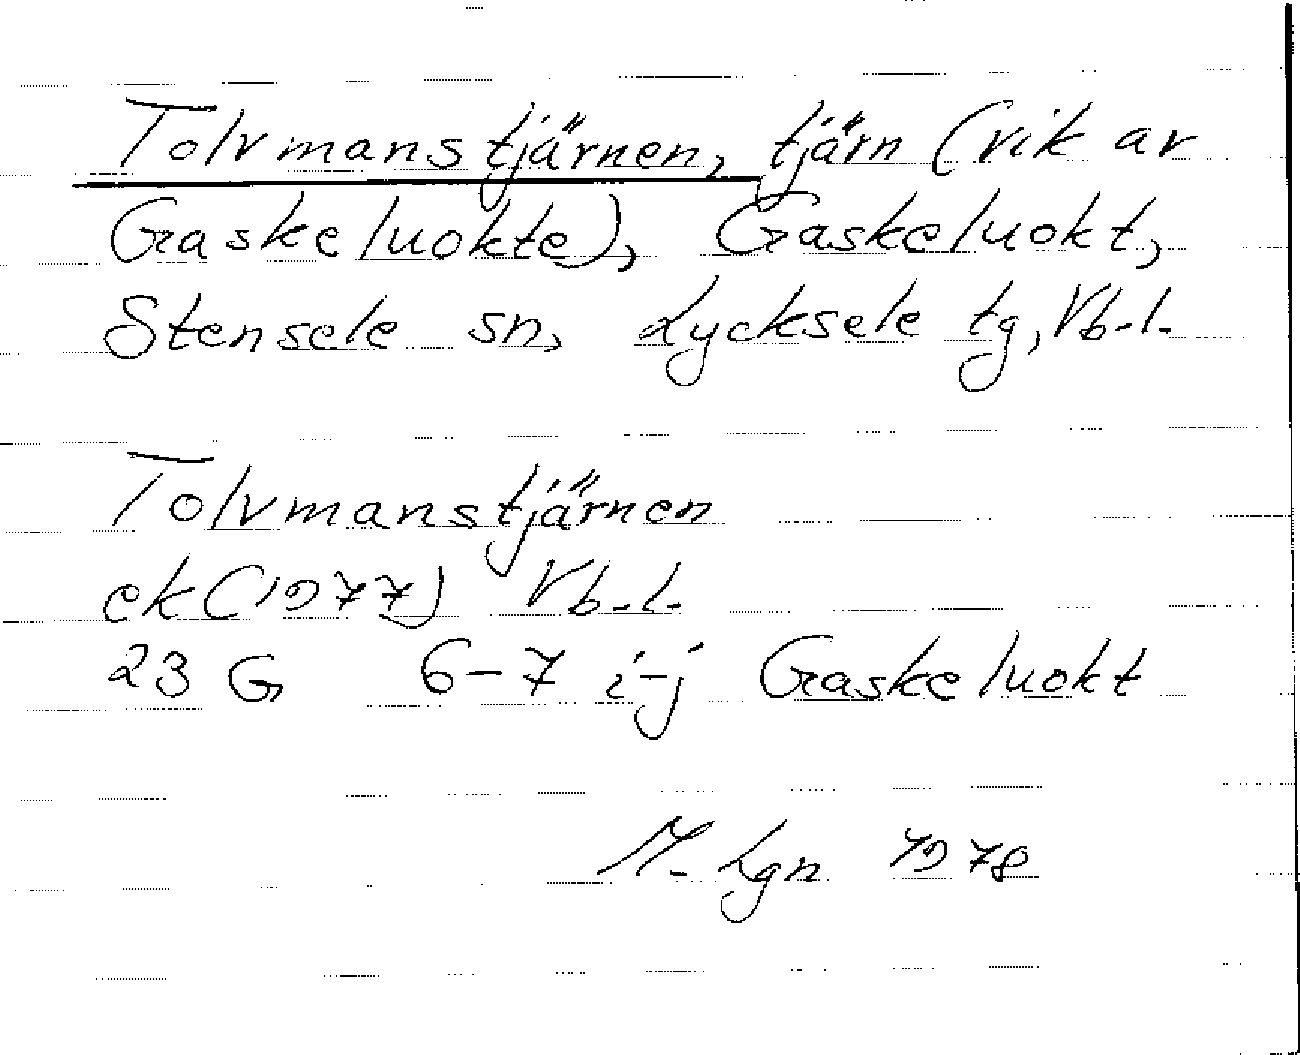 Tolvmanstjärnen, tjärn (vik av
Gaskeluokte), Gaskeluokt,
Stensele sn, Lycksele tg, Vb.l.
Tolvmanstjärnen
ek(1977) Vb.l.
23 G 6-7 i-j Gaskeluokt
M. Lgn 1978